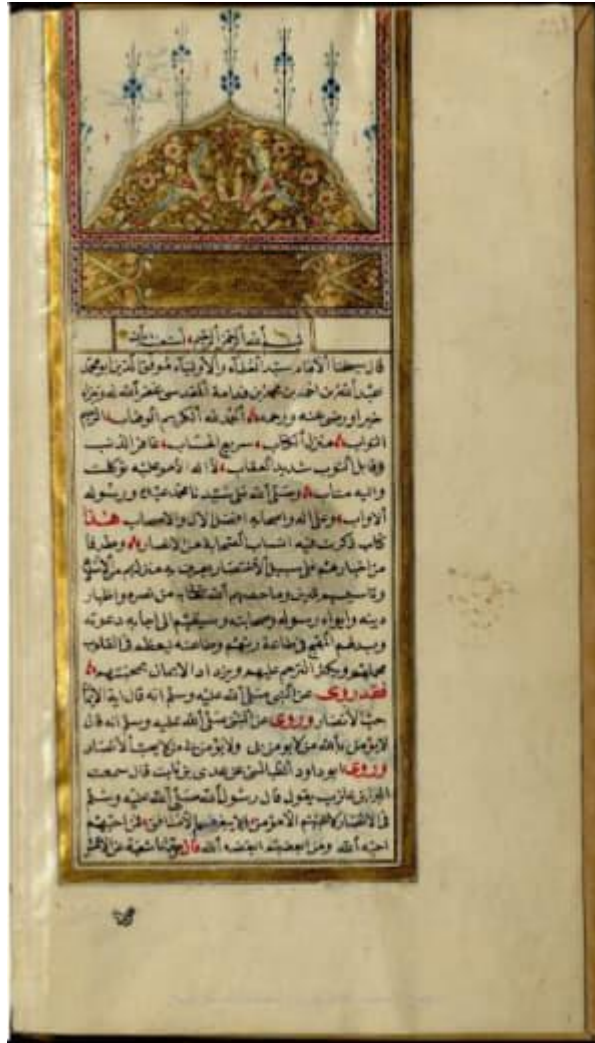 بسم الله الرحمن الرحيم
قال شيخنا الامام سيد العلماء والاولياء موفق الدين ابو محمد
عبد الله بن احمد بن محمد بن قدامة المقدسى غفر الله له وجزاه
خيرا ورضى عنه ورحمه الحمد لله الكريم الوهاب الرحيم
التواب منزل الكتاب سريع الحساب غافر الذنب
وقابل التوب شديد العقاب لا اله الا هو عليه توكلت
واليه متاب وصلى الله على سيدنا محمد عبده ورسوله
الاواب وعلى اله واصحابه افضل الال والاصحاب هذا
كتاب ذكرت فيه انساب الصحابة من الانصار وطرفا
من اخبارهم على سبيل الاختصار يعرف به منازلهم من
وما خصهم الله تعالى به من نصره واظهار
دينه وايواء رسوله وصحابته وسبقهم الى اجابة دعوته
فى طاعة ربهم وطاعته ليعظم فى القلوب
محلهم ويكثر الترحم عليهم ويزداد الايمان بمحبتهم
فقد روى عن النبى صلى الله عليه وسلم انه قال اية الايمان
حب الانصار وروى عن النبى صلى الله عليه وسلم انه قال
لا يؤمن بالله من لا يؤمن بى ولا يؤمن بى من لا يحب الانصار
وروى ابو داود الطيالسى عن عدى بن ثابت قال سمعت
البرا بن عازب يقول قال رسول الله صلى الله عليه وسلم
فى الانصار لا يحبهم الا مؤمن ولا يبغضهم الا منافق من احبهم
احبه الله ومن ابغضهم ابغضه الله قال حدثنا شعبة عن